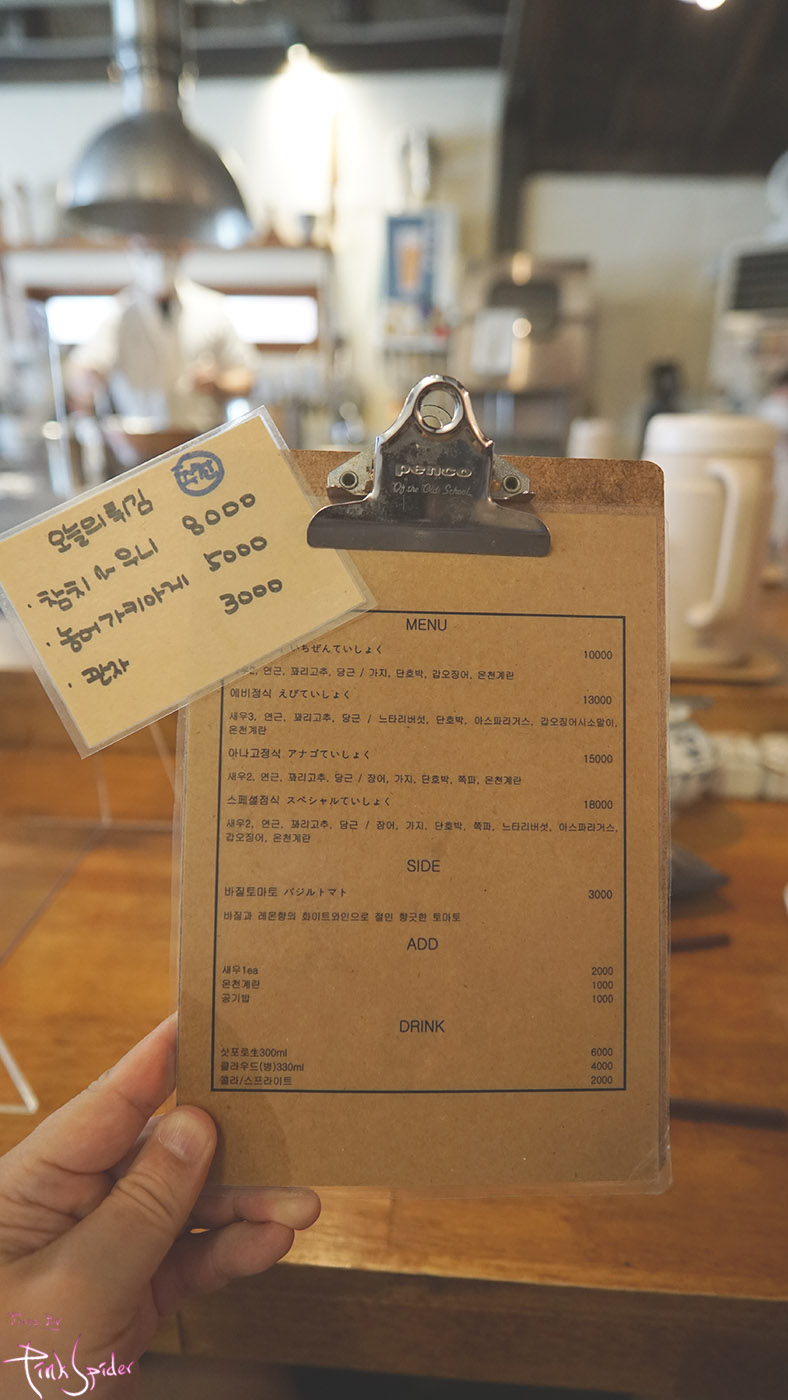 penco
Of the Old School
오늘의튀김
· 참치 ~ 우니 8000
· 농어가키아게 5000
· 관자 3000
MENU
いちぜんていしょく 10000
연근, 꽈리고추, 당근 / 가지, 단호박, 갑오징어, 온천계란
에비정식 えびていしょく 13000
새우3, 연근, 꽈리고추, 당근 / 느타리버섯, 단호박, 아스파라거스, 갑오징어시소말이,
온천계란
아나고정식 アナゴていしょく 15000
새우2, 연근, 꽈리고추, 당근 / 장어, 가지, 단호박, 쪽파, 온천계란
스페셜정식 スペシャルていしょく 18000
새우2, 연근, 꽈리고추, 당근 / 장어, 가지, 단호박, 쪽파, 느타리버섯, 아스파라거스,
갑오징어, 온천계란
SIDE
바질토마토 バジルトマト 3000
바질과 레몬향의 화이트와인으로 절인 향긋한 토마토
ADD
새우1ea 2000
온천계란 1000
공기밥 1000
DRINK
삿포로生300ml 6000
클라우드(병)330ml 4000
콜라/스프라이트 2000
PinkSpider